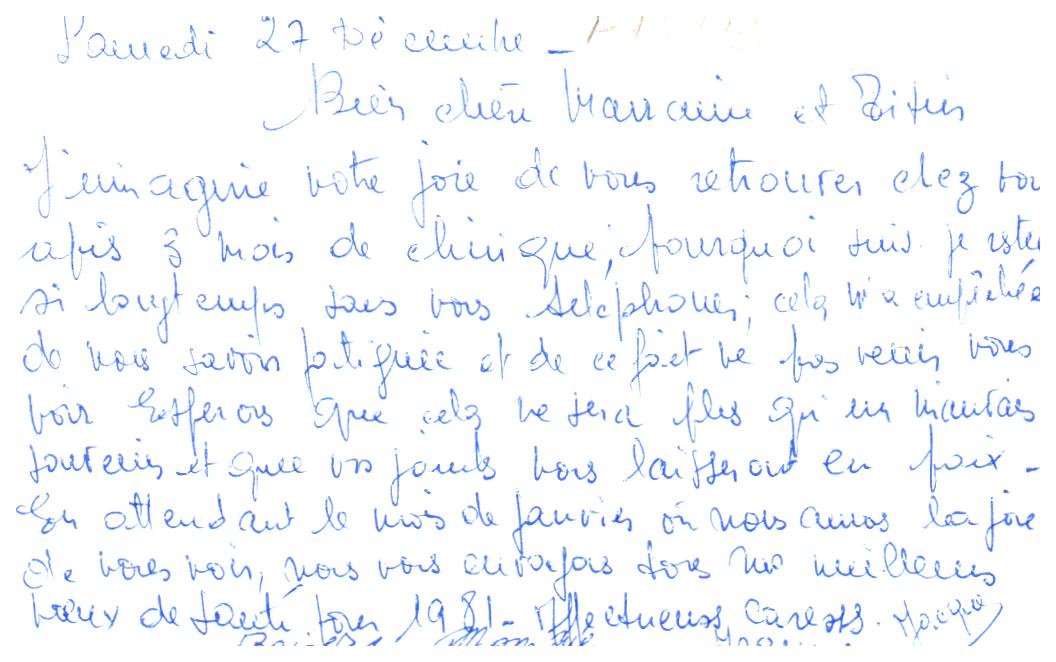 Samedi 27 Décembre -
Bien chère Marraine et Titin
J'imagine votre joie de vous retrouver chez vou
après 3 mois de clinique, pourquoi suis je resté
si longtemps sans vous téléphoner; cela m'a empêchée
de vous savoir fatiguée et de ce fait ne pas venir vous
voir Espérons que cela ne sera plus qu'un mauvais
souvenir et que vos jambes vous laisseront en paix -
En attendant le mois de janvier où nous aurons la joie
de vous voir, nous vous envoyons tous nos meilleurs
voeux de santé pour 1981. Affectueuses caresses.